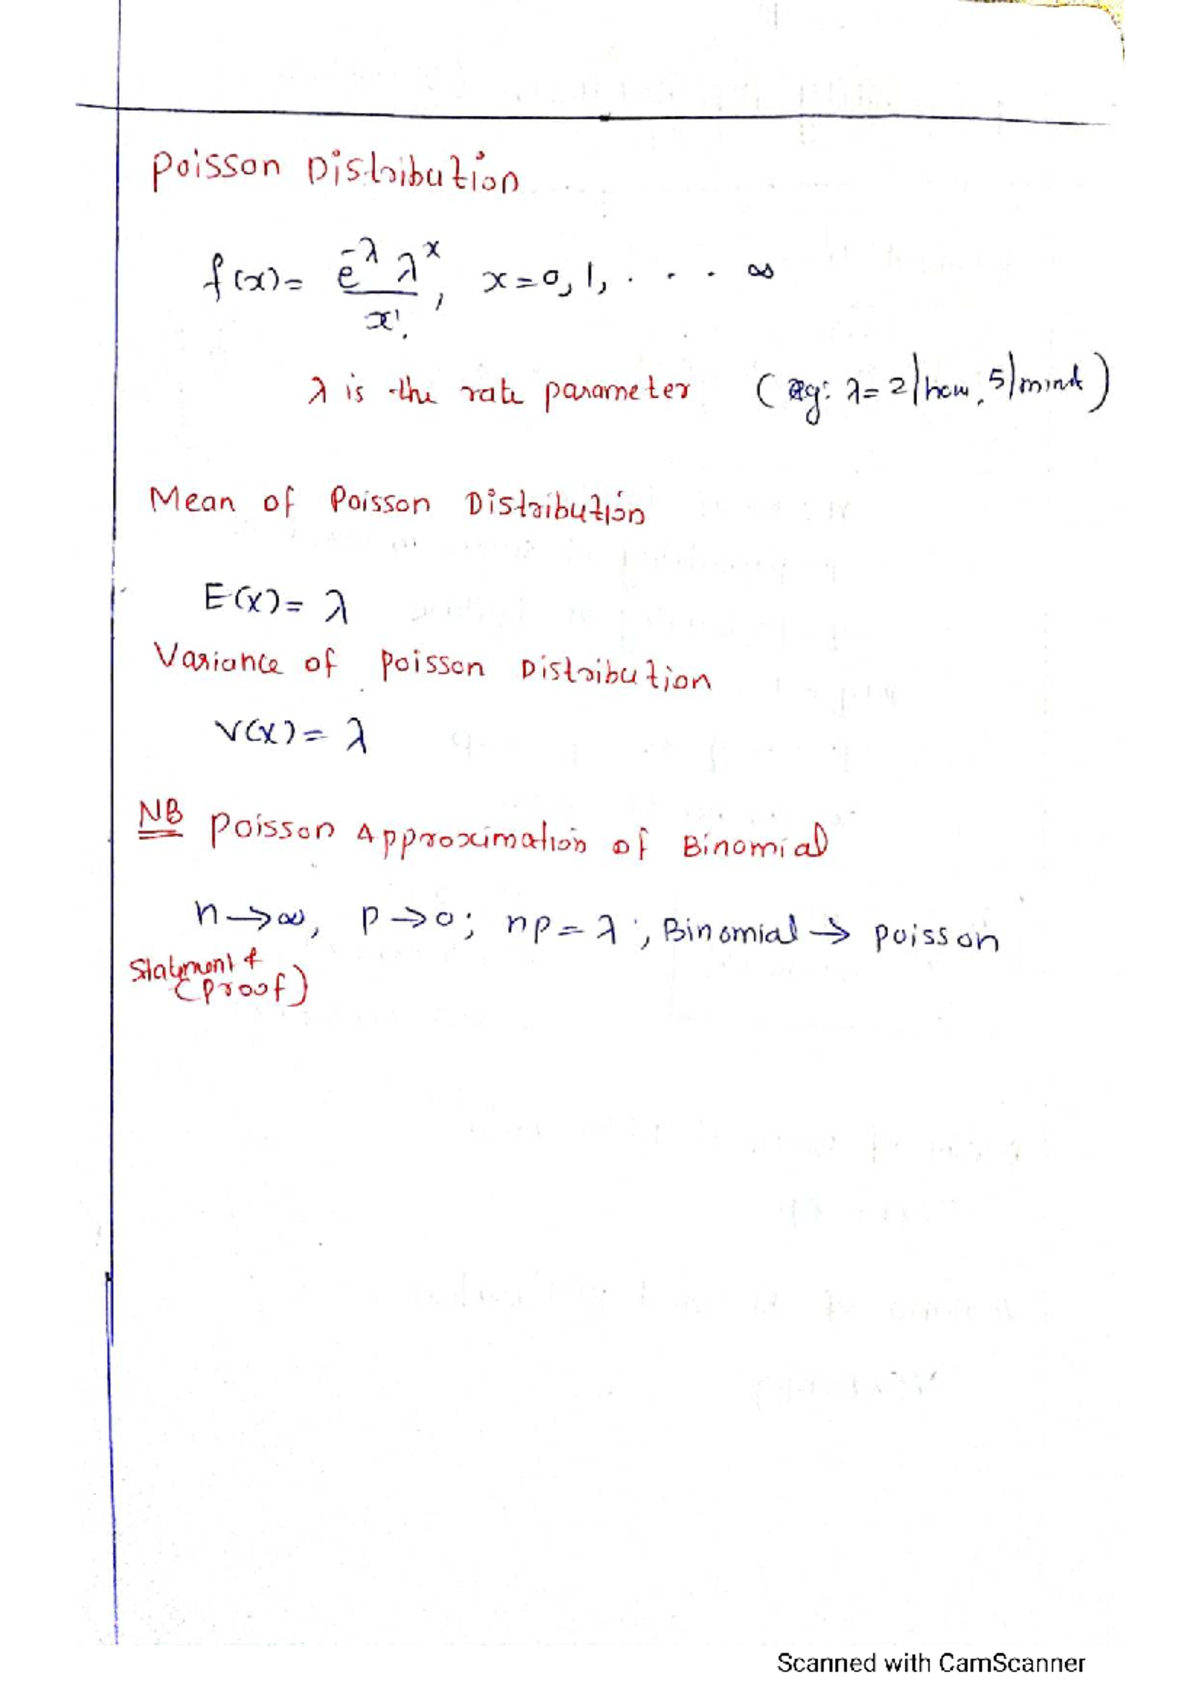 Poisson Distribution
f(x) = e^-λ λ^x / x! , x = 0, 1, . . . ∞
λ is the rate parameter (eg: λ = 2/hour, 5/minut)
Mean of Poisson Distribution
E(X) = λ
Variance of Poisson Distribution
V(X) = λ
NB Poisson Approximation of Binomial
n → ∞, p → 0; np = λ ; Binomial → poisson
Statment &
(proof)
Scanned with CamScanner